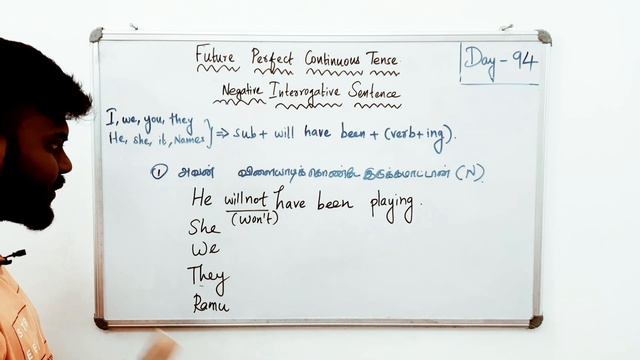 Future Perfect Continuous Tense
Day - 94
Negative Interrogative Sentence
I, we, you, they
He, she, it, Names } ⇒ sub + will have been + (verb + ing).
① அவன் விளையாடிக்கொண்டே இருக்கமாட்டான் (N).
He will not have been playing.
(won't)
She
We
They
Ramu